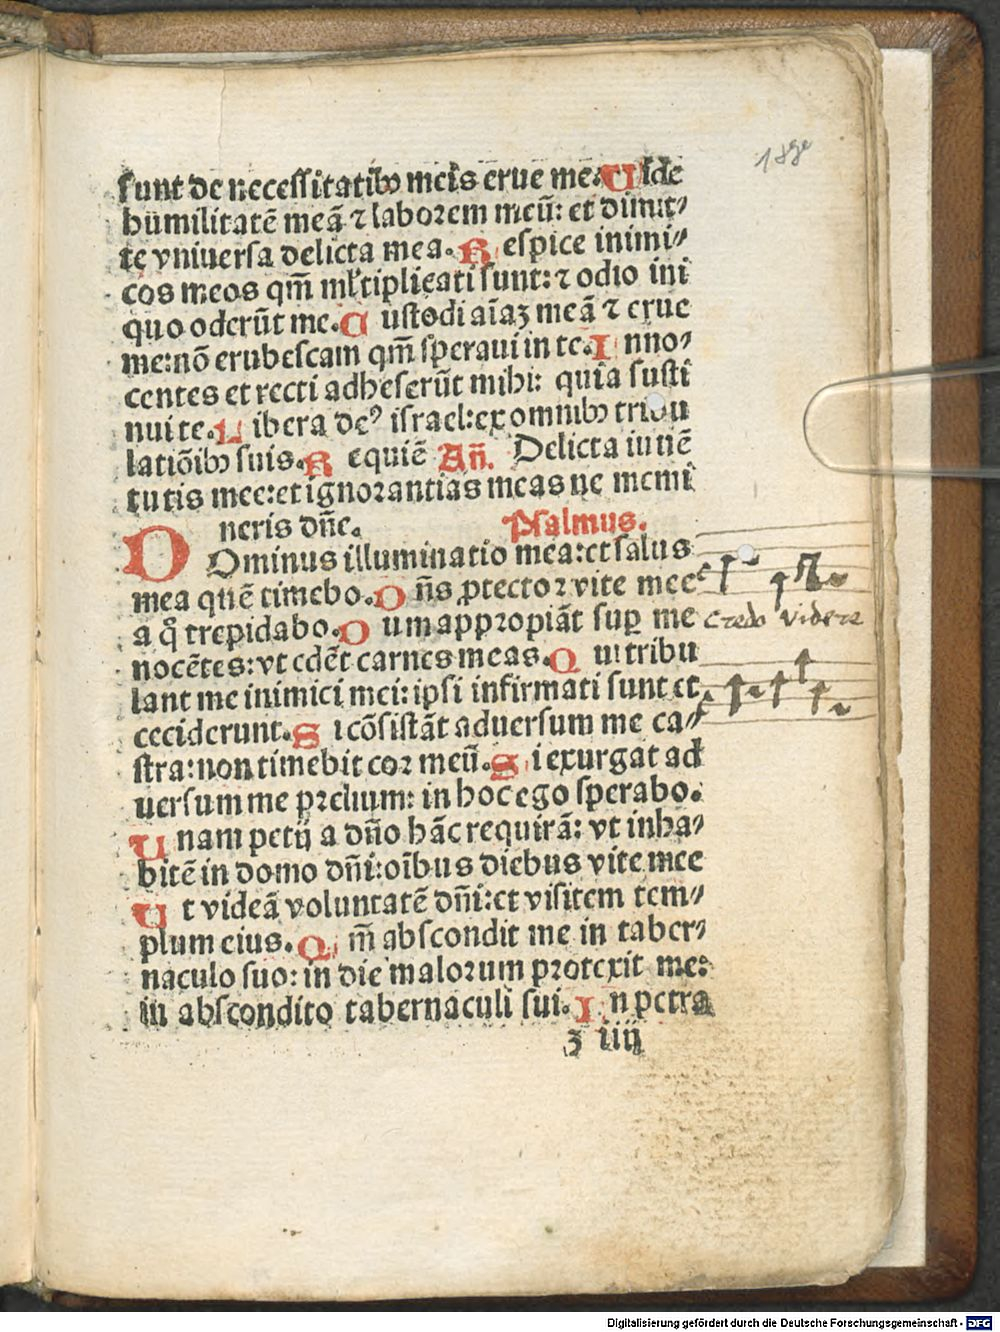 sunt de necessitatibꝰ meis erue me. Uide
humilitatē meā ⁊ laborem meū: et dimit⸗
te vniuersa delicta mea. Respice inimi⸗
cos meos qm̄ ml̓tiplicati sunt: ⁊ odio ini
quo oderūt me. Custodi aīaꝫ meā ⁊ erue
me: nō erubescam qm̄ speraui in te. Inno⸗
centes et recti adheserūt mihi: quia susti
nui te. Libera deꝰ israel: ex omnibꝰ tribu
latiōibꝰ suis. Requiē Añ. Delicta iuuē
tutis mee: et ignorantias meas ne memi
neris dñe. Psalmus.
DOminus illuminatio mea: et salus
mea quē timebo. Dñs ꝓtector vite mee
a q̄ trepidabo. Dum appropiāt suꝑ me
nocētes: vt edēt carnes meas. Qui tribu
lant me inimici mei: ipsi infirmati sunt et
ceciderunt. Si cōsistāt aduersum me ca⸗
stra: non timebit cor meū. Si exurgat ad
uersum me prelium: in hoc ego sperabo.
Unam petij a dño hāc requirā: vt inha⸗
bitē in domo dñi: oībus diebus vite mee
Ut videā voluntatē dñi: et visitem tem⸗
plum eius. Qm̄ abscondit me in taber⸗
naculo suo: in die malorum protexit me:
in abscondito tabernaculi sui. In petra
ʒ iiij
Credo videre
Digitalisierung gefördert durch die Deutsche Forschungsgemeinschaft - DFG